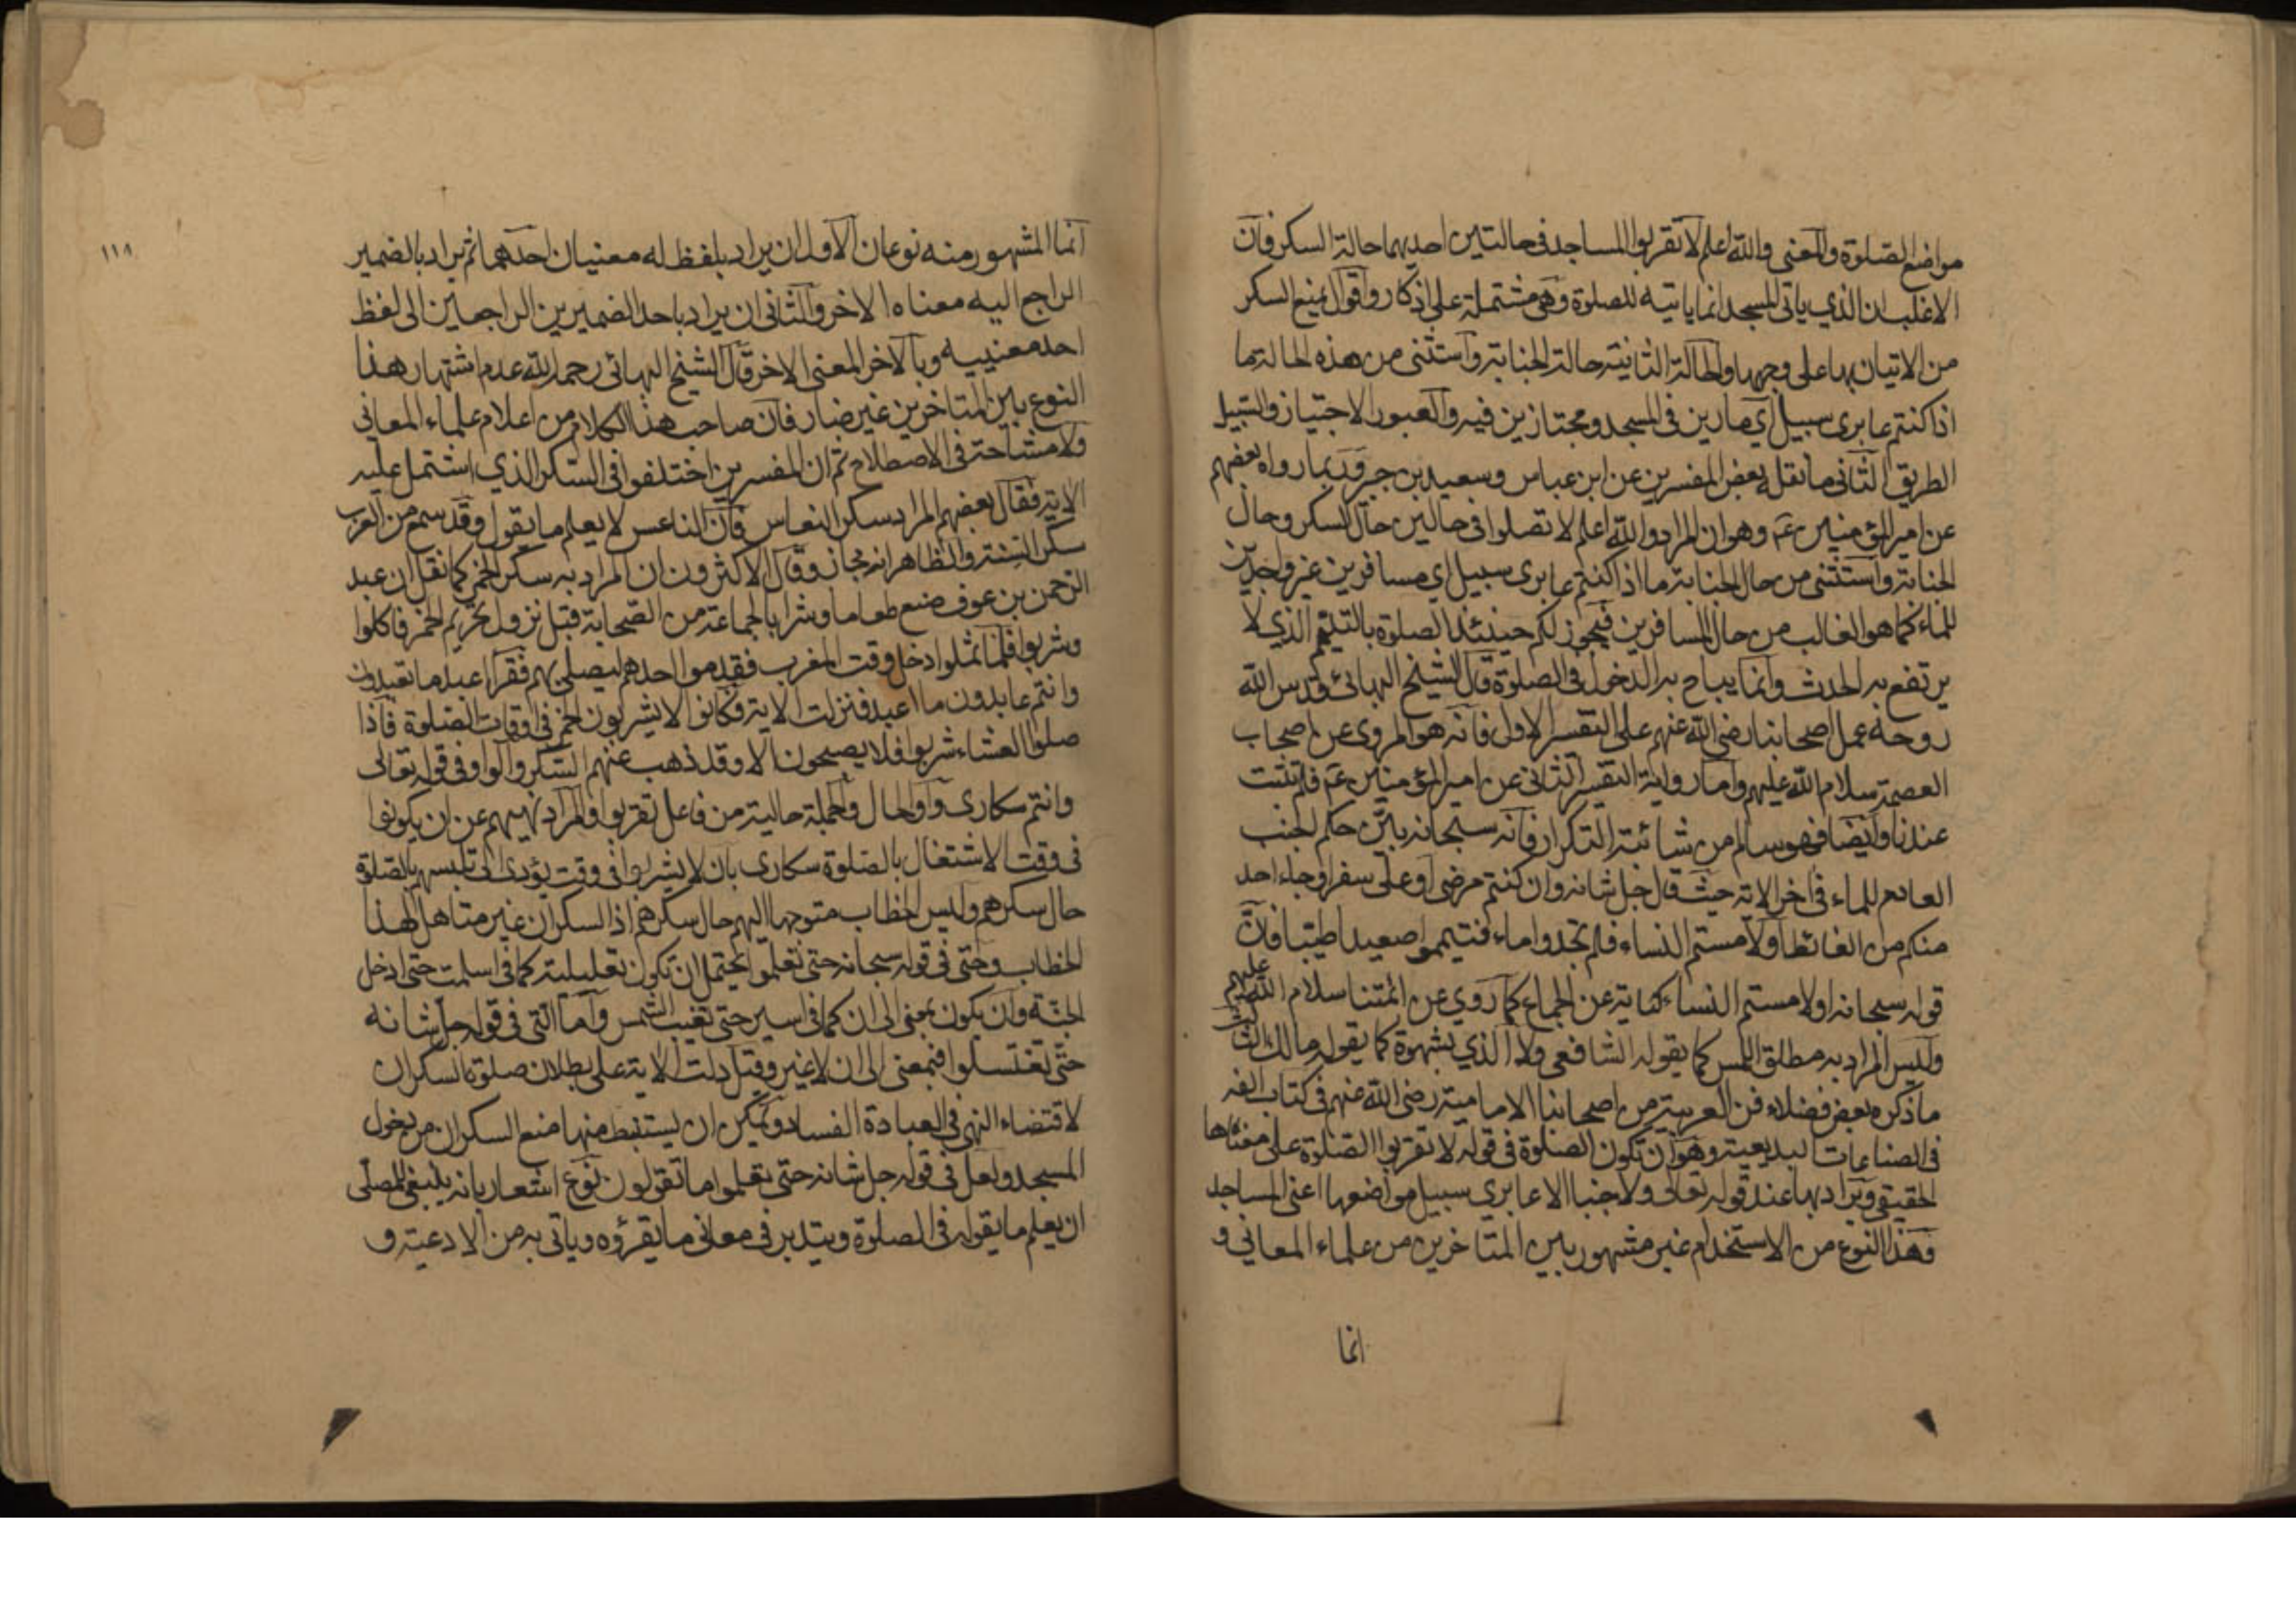 مواضع الصلوة والمعنى والله اعلم لا تقربوا المساجد في حالتين احديهما حالة السكر فان
الاغلب ان الذي ياتي المسجد انما ياتيه للصلوة وهي مشتملة على اذكار واقوال يمنع السكر
من الاتيان بها على وجهها والحالة الثانية حالة الجنابة واستثنى من هذه الحالة ما
اذا كنتم عابرى سبيل اي مارين في المسجد ومجتازين فيه والعبور الاجتياز والسبيل
الطريق الثاني ما نقله بعض المفسرين عن ابن عباس وسعيد بن جبير وربما رواه بعضهم
عن امير المؤمنين عم وهو ان المراد والله اعلم لا تصلوا في حالين حال السكر وحال
الجنابة واستثنى من حال الجنابة ما اذا كنتم عابرى سبيل اي مسافرين غير واجدين
للماء كما هو الغالب من حال المسافرين فيجوز لكم حينئذ الصلوة بالتيمم الذي لا
يرتفع به الحدث وانما يباح به الدخول في الصلوة قال الشيخ البهائي قدس الله
روحه عمل اصحابنا رضي الله عنهم على التفسير الاول فانه هو المروى عن اصحاب
العصمة سلام الله عليهم واما رواية التفسير الثاني عن امير المؤمنين عم فلم تثبت
عندنا وايضا فهو سالم من شائبة التكرار فانه سبحانه بين حكم الجنب
العادم للماء في اخر الاية حيث قال جل شانه وان كنتم مرضى او على سفر او جاء احد
منكم من الغائط او لامستم النساء فلم تجدوا ماء فتيمموا صعيدا طيبا فان
قوله سبحانه او لامستم النساء كناية عن الجماع كما روي عن ائمتنا سلام الله عليهم
وليس المراد به مطلق اللمس كما يقوله الشافعي ولا الذي بشهوة كما يقوله مالك الثالث
ما ذكره بعض فضلاء فن العربية من اصحابنا الامامية رضي الله عنهم في كتاب الفه
في الصناعات البديعية وهو ان تكون الصلوة في قوله لا تقربوا الصلوة على معناها
الحقيقي ويراد بها عند قوله تعالى ولا جنبا الا عابري سبيل مواضعها اعني المساجد
وهذا النوع من الاستخدام غير مشهور بين المتاخرين من علماء المعاني و
انما
١١٨
انما المشهور منه نوعان الاول ان يراد بلفظ له معنيان احدهما ثم يراد بالضمير
الراجع اليه معناه الاخر والثاني ان يراد باحد الضميرين الراجعين الى لفظ
احد معنييه وبالاخر المعنى الاخر قال الشيخ البهائي رحمه الله عدم اشتهار هذا
النوع بين المتاخرين غير ضار فان صاحب هذا الكلام من اعلام علماء المعاني
ولا مشاحة في الاصطلاح ثم ان المفسرين اختلفوا في السكر الذي اشتمل عليه
الاية فقال بعضهم المراد سكر النعاس فان الناعس لا يعلم ما يقول وقد سمع من العرب
سكر السنة والظاهر انه مجاز وقال الاكثرون ان المراد به سكر الخمر كما نقل ان عبد
الرحمن بن عوف صنع طعاما وشرابا لجماعة من الصحابة قبل نزول تحريم الخمر فاكلوا
وشربوا فلما ثملوا دخل وقت المغرب فقدموا احدهم ليصلي بهم فقرا اعبد ما تعبدون
وانتم عابدون ما اعبد فنزلت الاية فكانوا لا يشربون الخمر في اوقات الصلوة فاذا
صلوا العشاء شربوا فلا يصبحون الا وقد ذهب عنهم السكر والواو في قوله تعالى
وانتم سكارى واو الحال والجملة حالية من فاعل تقربوا والمراد نهيهم عن ان يكونوا
في وقت الاشتغال بالصلوة سكارى بان لا يشربوا في وقت يؤدى الى تلبسهم بالصلوة
حال سكرهم وليس الخطاب متوجها اليهم حال سكرهم اذ السكران غير متاهل لهذا
الخطاب وحتى في قوله سبحانه حتى تعلموا يحتمل ان تكون تعليلية كما في اسلمت حتى ادخل
الجنة وان يكون بمعنى الى ان كما في اسير حتى تغيب الشمس واما التي في قوله جل شانه
حتى تغتسلوا فبمعنى الى ان لا غير وقيل دلت الاية على بطلان صلوة السكران
لاقتضاء النهي في العبادة الفساد ويمكن ان يستنبط منها منع السكران من دخول
المسجد ولعل في قوله جل شانه حتى تعلموا ما تقولون نوع اشعار بانه ينبغي للمصلى
ان يعلم ما يقوله في الصلوة ويتدبر في معاني ما يقرؤه وياتي به من الادعية و